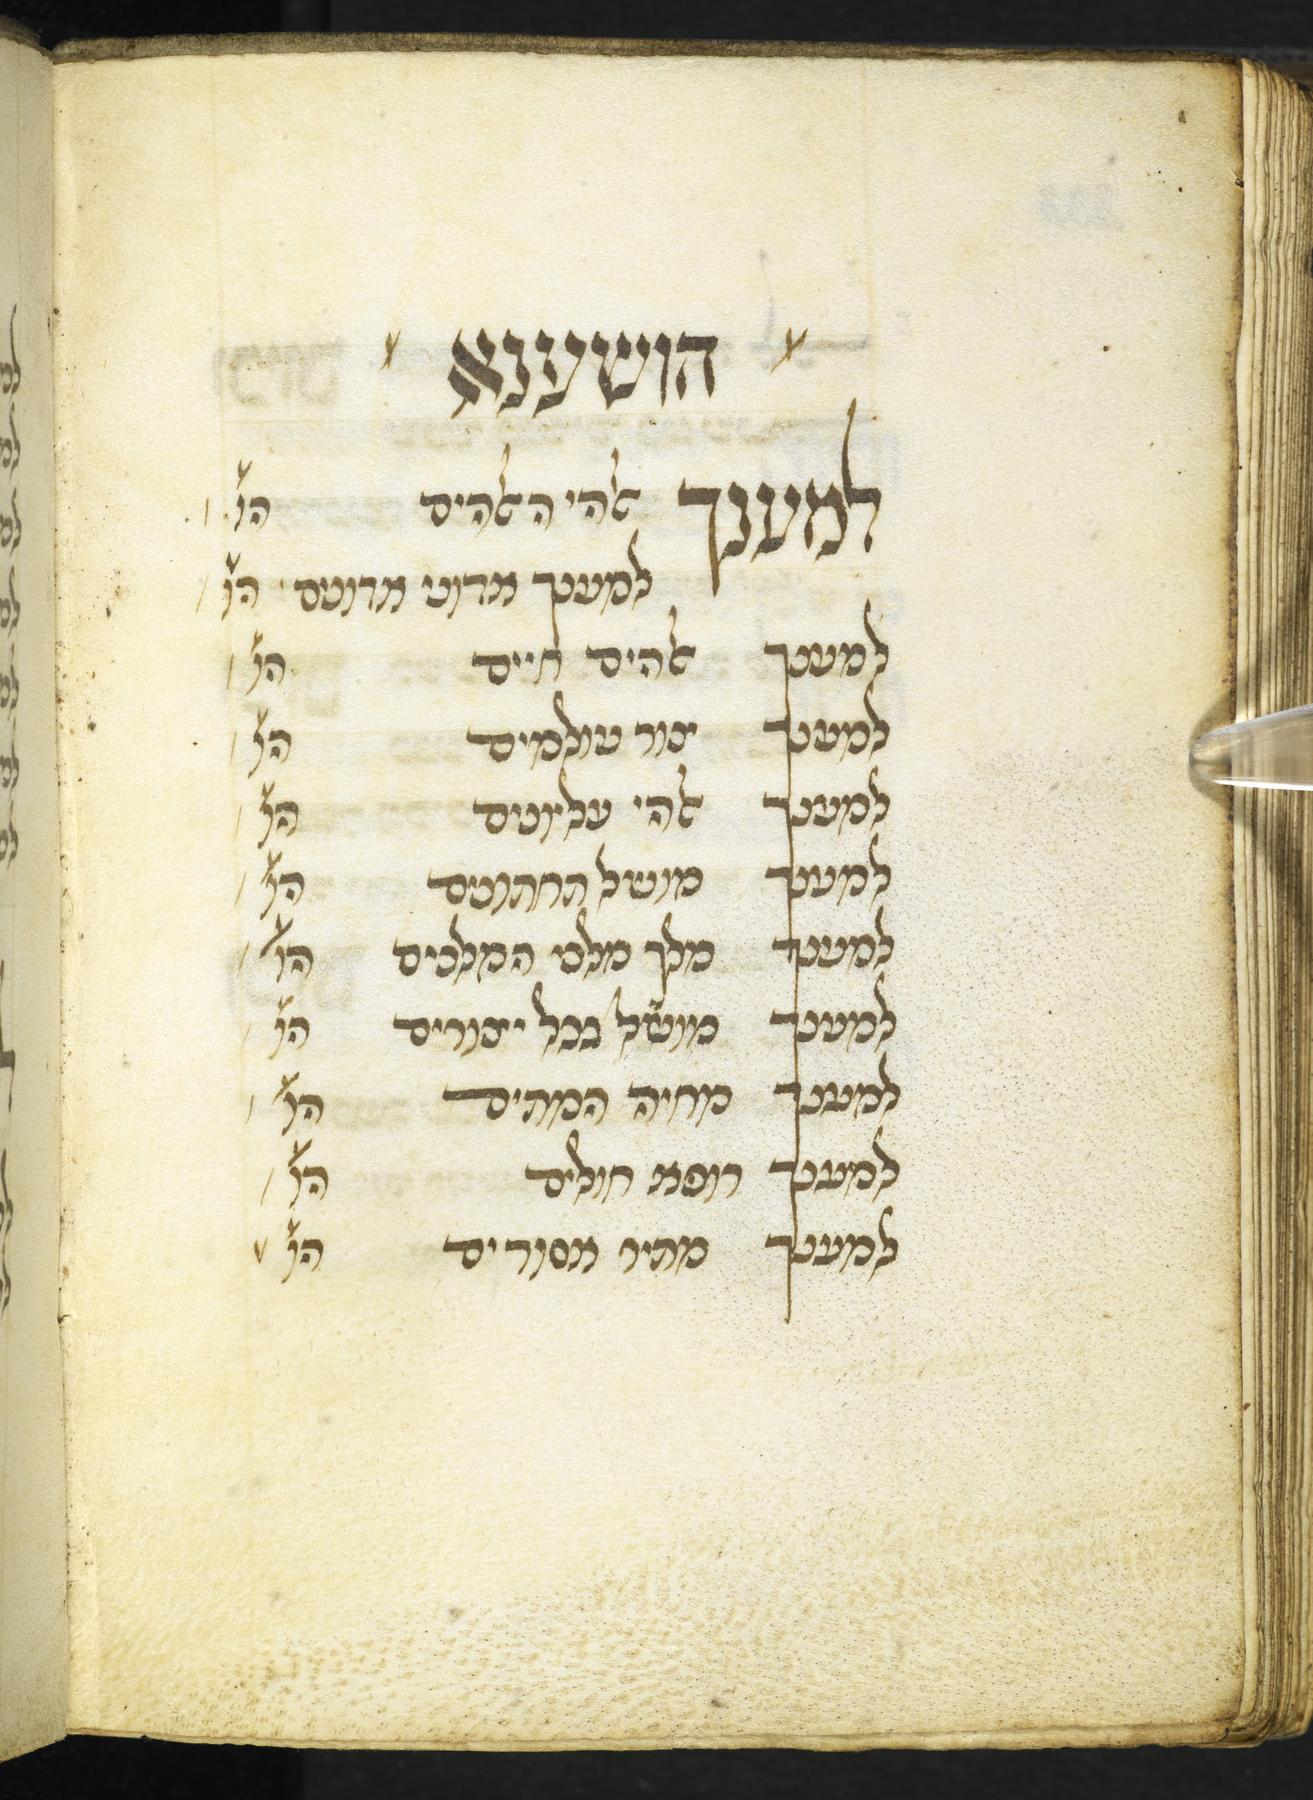 הושענא
למענך אלהי האלהים הו'
למענך אדוני אדונים הו'
למענך אלהים חיים הו'
למענך יצור עולמים הו'
למענך אלהי עליונים הו'
למענך מושל תחתונים הו'
למענך מלך מלכי המלכים הו'
למענך מושל בכל יצורים הו'
למענך מחיה המתים הו'
למענך רופא חולים הו'
למענך מתיר אסורים הו'